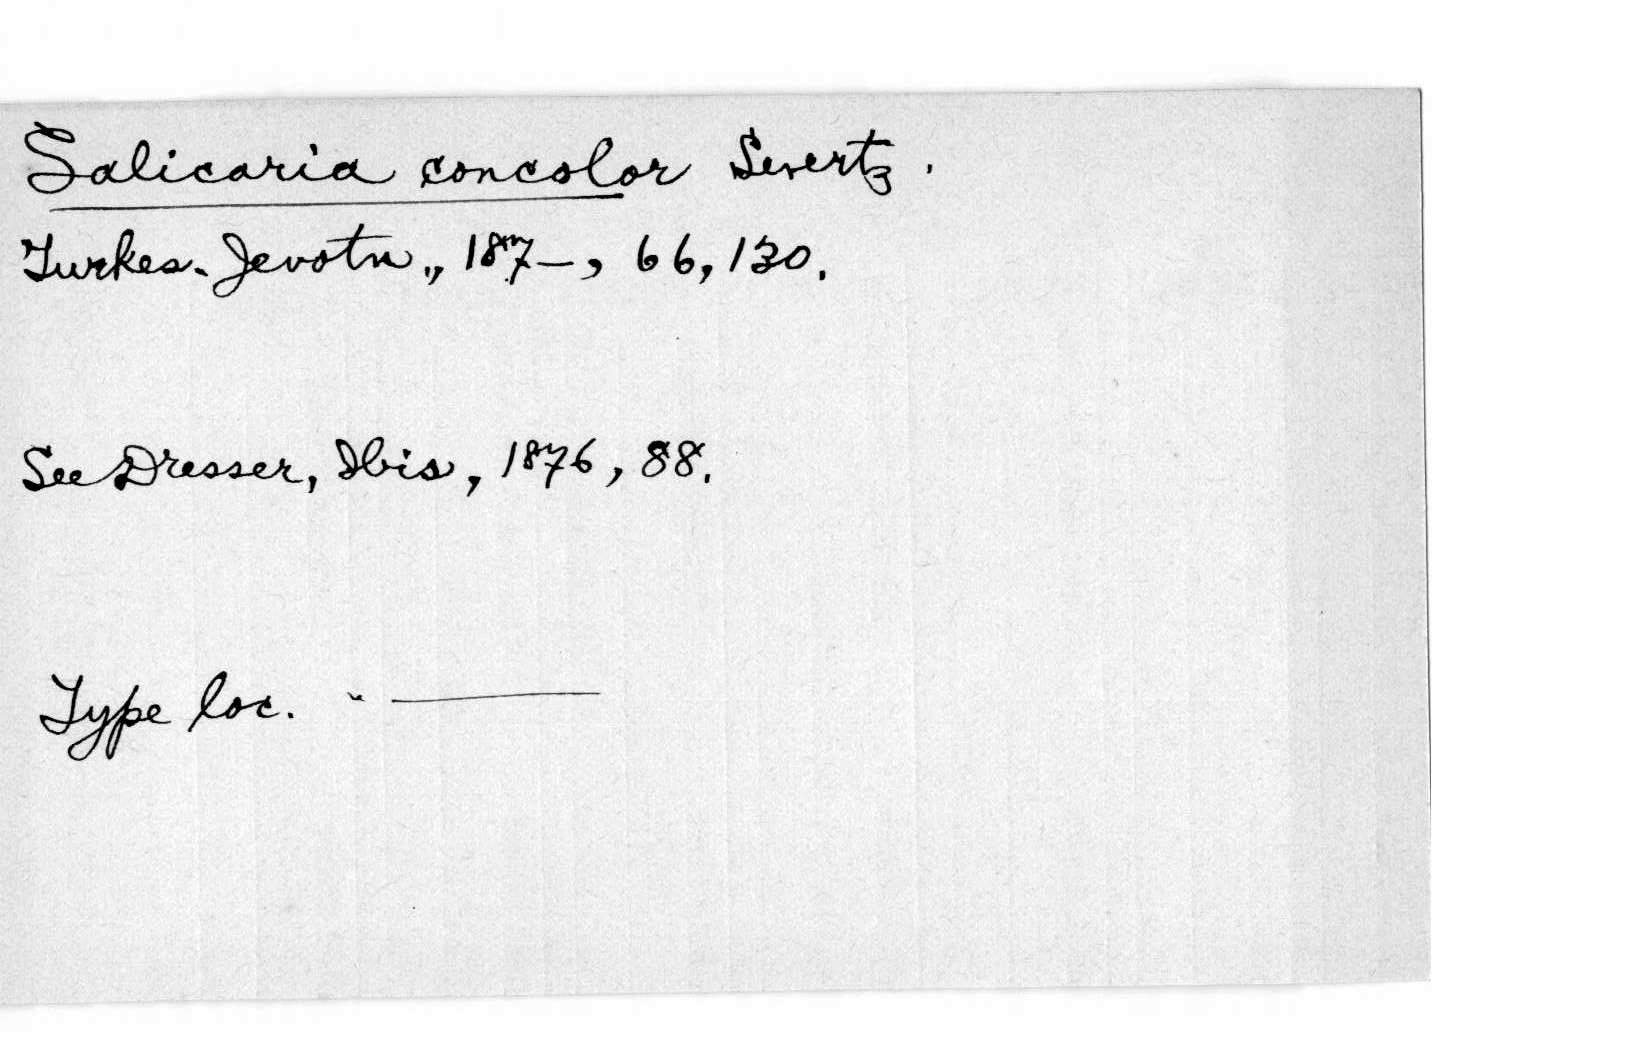 Salicaria concolor Severtz.
Turkes. Jevotn., 187–, 66, 130.
See Dresser, Ibis, 1876, 88.
Type loc. - —